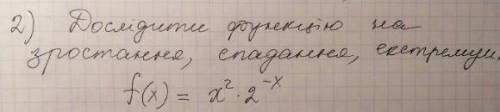 2) Дослідити функцію на
зростання, спадання, екстремуми.
f(x) = x² · 2⁻ˣ